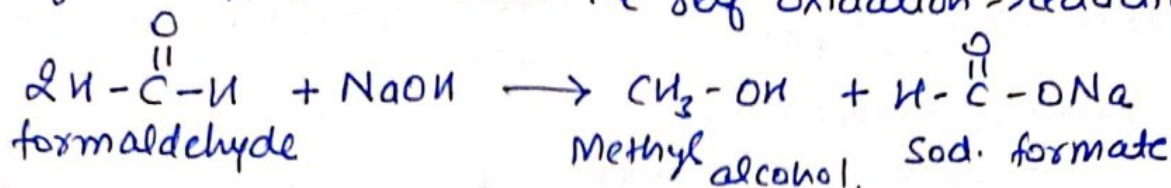 self oxidation-reduction
O
||
2H-C-H + NaOH → CH₃-OH + H-C(=O)-ONa
formaldehyde Methyl alcohol. Sod. formate